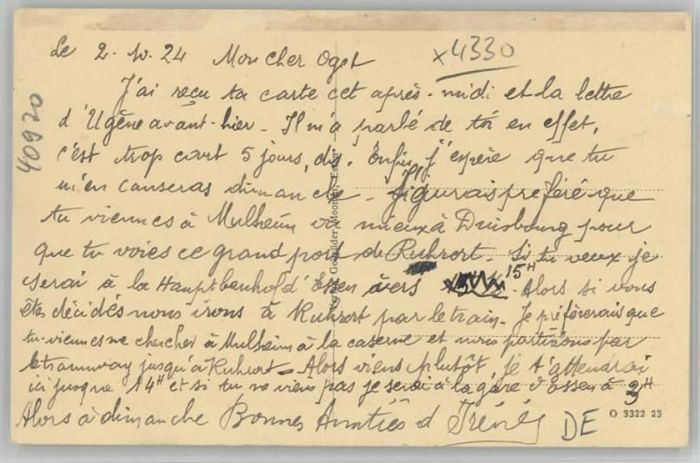 Le 2. 10. 24 Mon cher Ogst
x4330
J'ai reçu ta carte cet après-midi et la lettre
d'Ugène avant-hier. Il m'a parlé de toi en effet,
c'est trop court 5 jours, dis. Enfin j'espère que tu
m'en causeras dimanche.
préféré que
tu viennes à Mulheim mieux à Duisbourg pour
que tu voies ce grand port de Ruhrort. Si tu veux je
serai à la Hauptbanhof d'Essen à vers 15H. Alors si vous
êtes décidés nous irons à Ruhrort par le train. Je préférerais que
tu viennes me chercher à Mulheim à la caserne et nous partirions par
le tramway jusqu'à Ruhrort. Alors viens plutôt, je t'attendrai
ici jusque 14H et si tu ne viens pas je serai à la gare d'Essen à 3H
Alors à dimanche Bonnes Amitiés d'Irénée
DE
O 3322 23
40920